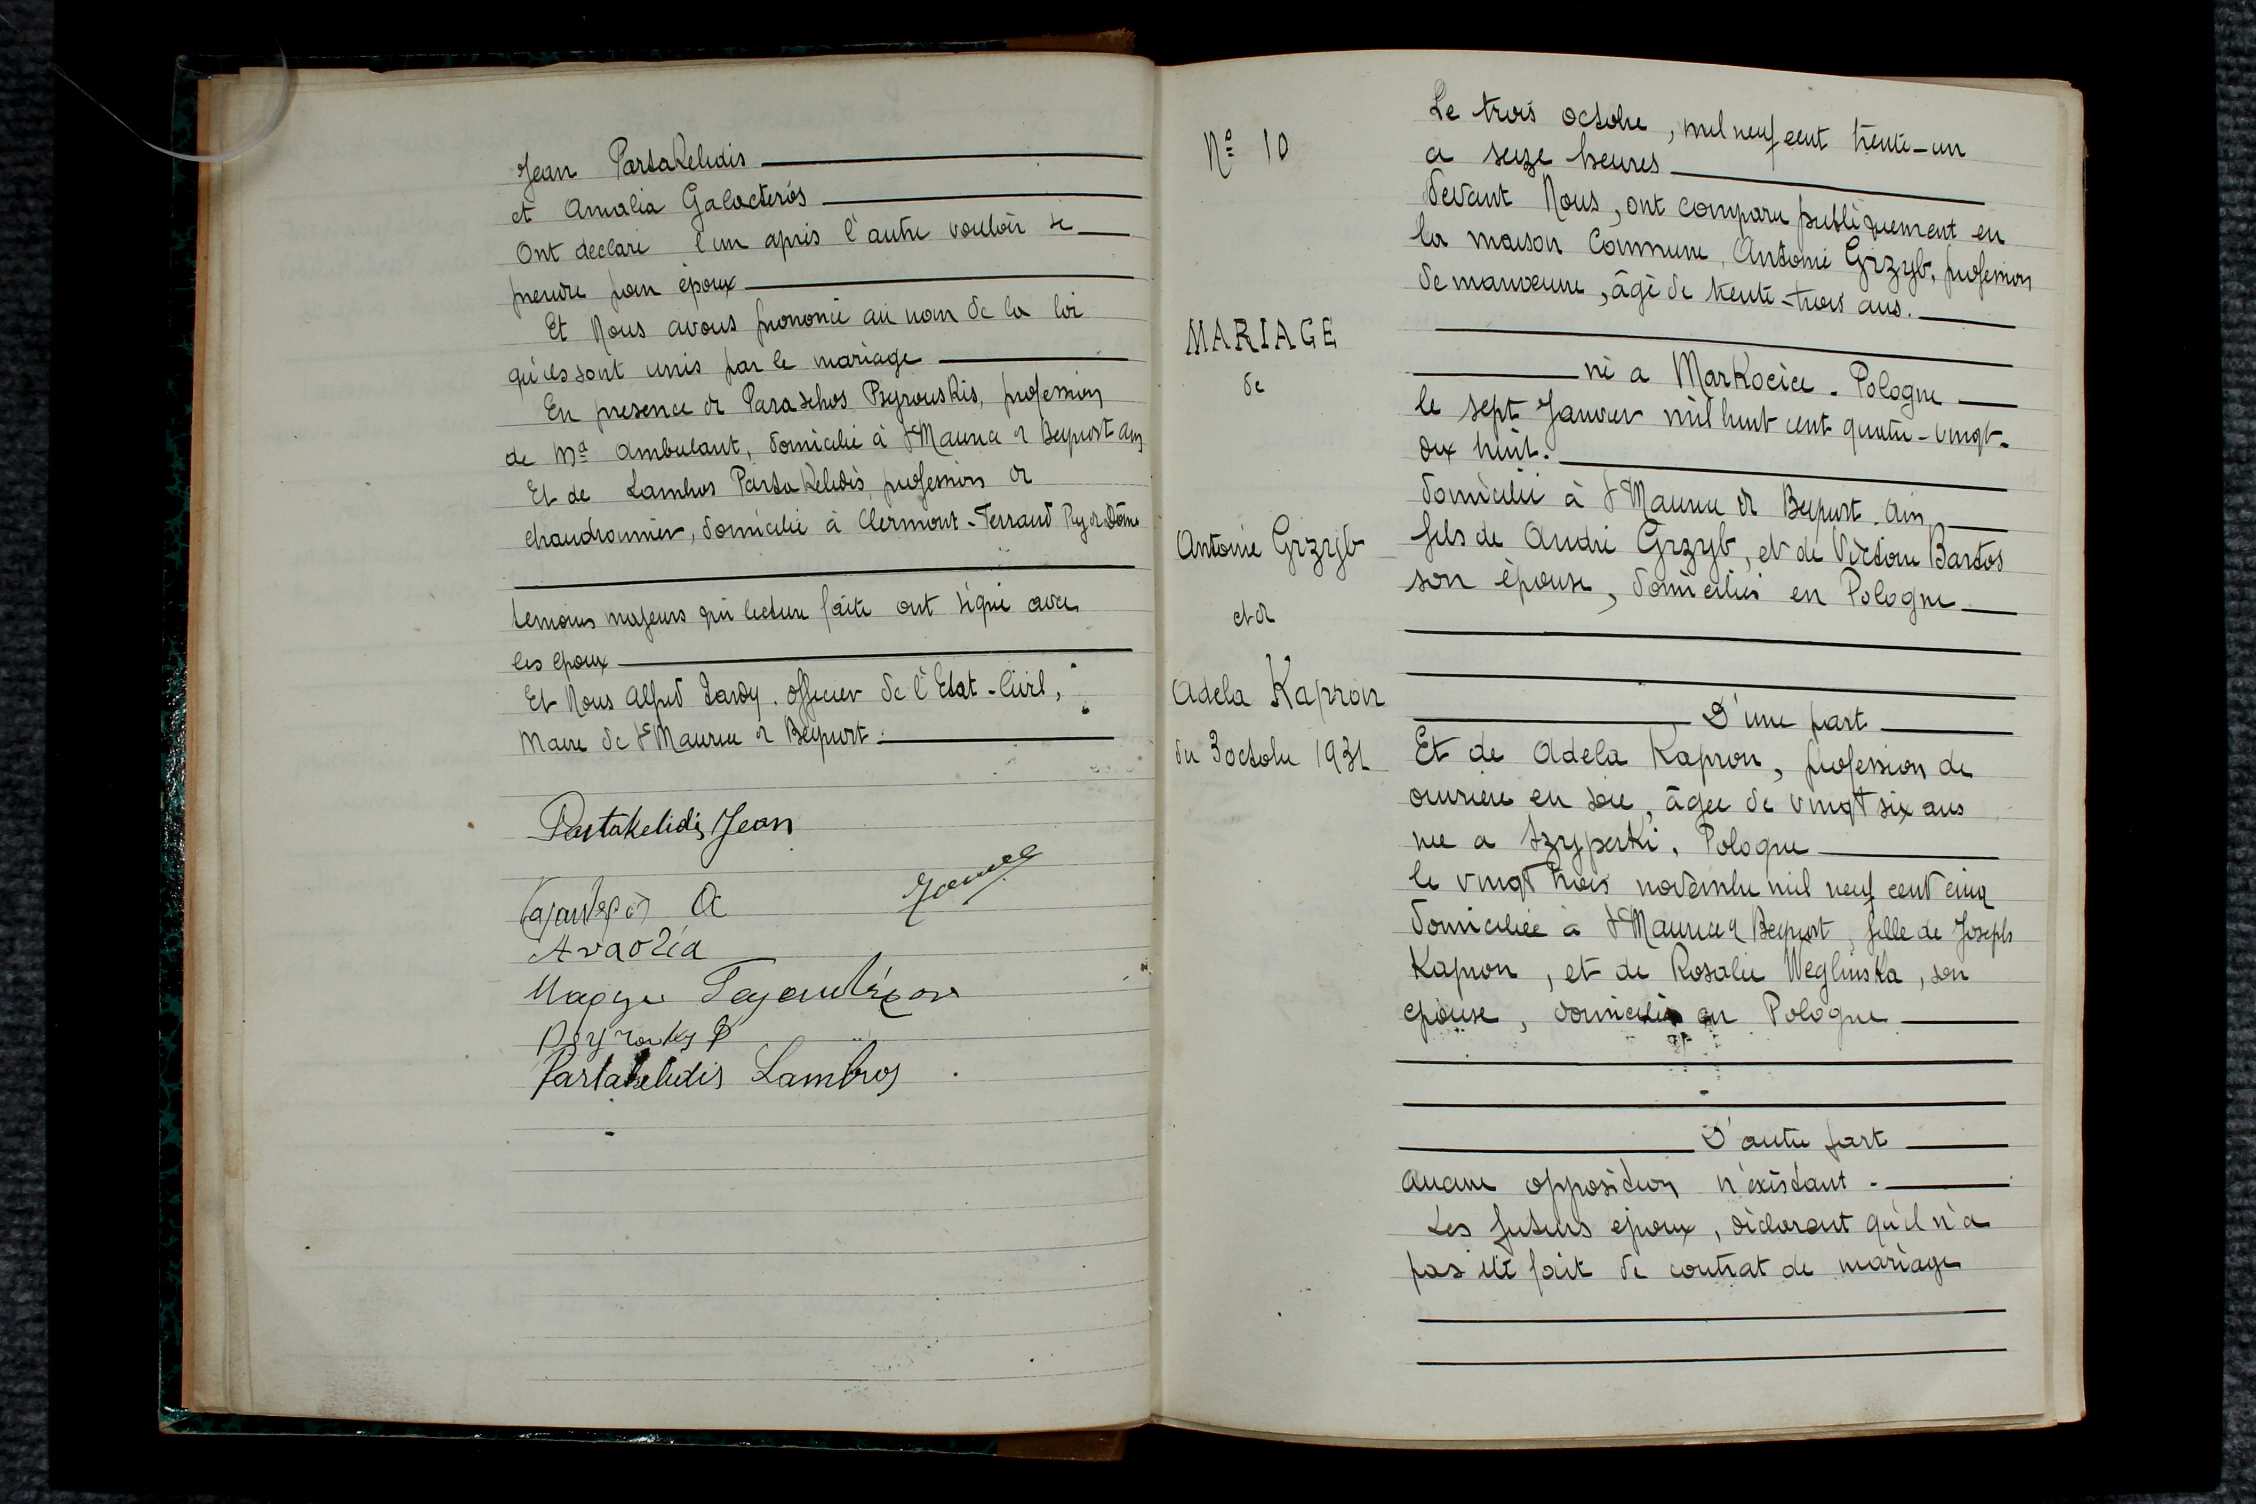 Jean Partakelidis
et Amalia Galacterós
Ont declaré l'un après l'autre vouloir se
prendre pour époux
Et Nous avons prononcé au nom de la loi
qu'ils sont unis par le mariage
En presence de Paraschos Psyrouskis, profession
de Md Ambulant, domicilié à St Maurice de Beynost Ain
Et de Lambros Partakelidis, profession de
chaudronnier, domicilié à Clermont-Ferrand Puy de Dôme
temoins majeurs qui lecture faite ont signé avec
les epoux
Et Nous Alfred Tardy. officier de l'Etat-Civil,
Maire de St Maurice de Beynost.
Partakelidis Jean
Partakelidis Lambros
No 10
MARIAGE
de
Antoine Grzyb
et de
Adela Kapron
du 3 octobre 1931
Le trois octobre, mil neuf cent trente-un
a seize heures
devant Nous, ont comparu publiquement en
la maison Commune, Antoine Grzyb, profession
de manœuvre, âgé de trente-trois ans.
né a Markocice. Pologne
le sept Janvier mil huit cent quatre-vingt-
dix huit.
domicilié à St Maurice de Beynost. Ain
fils de André Grzyb, et de Victoire Bartos
son épouse, domiciliés en Pologne
D'une part
Et de Adela Kapron, profession de
ouvrière en soie, âgée de vingt six ans
née a Szyperki. Pologne
le vingt trois novembre mil neuf cent cinq
domiciliée à St Maurice de Beynost, fille de Joseph
Kapron, et de Rosalie Weglinska, son
epouse, domiciliés en Pologne
D'autre part
Aucune opposition n'éxistant.
Les futurs epoux, déclarent qu'il n'a
pas été fait de contrat de mariage